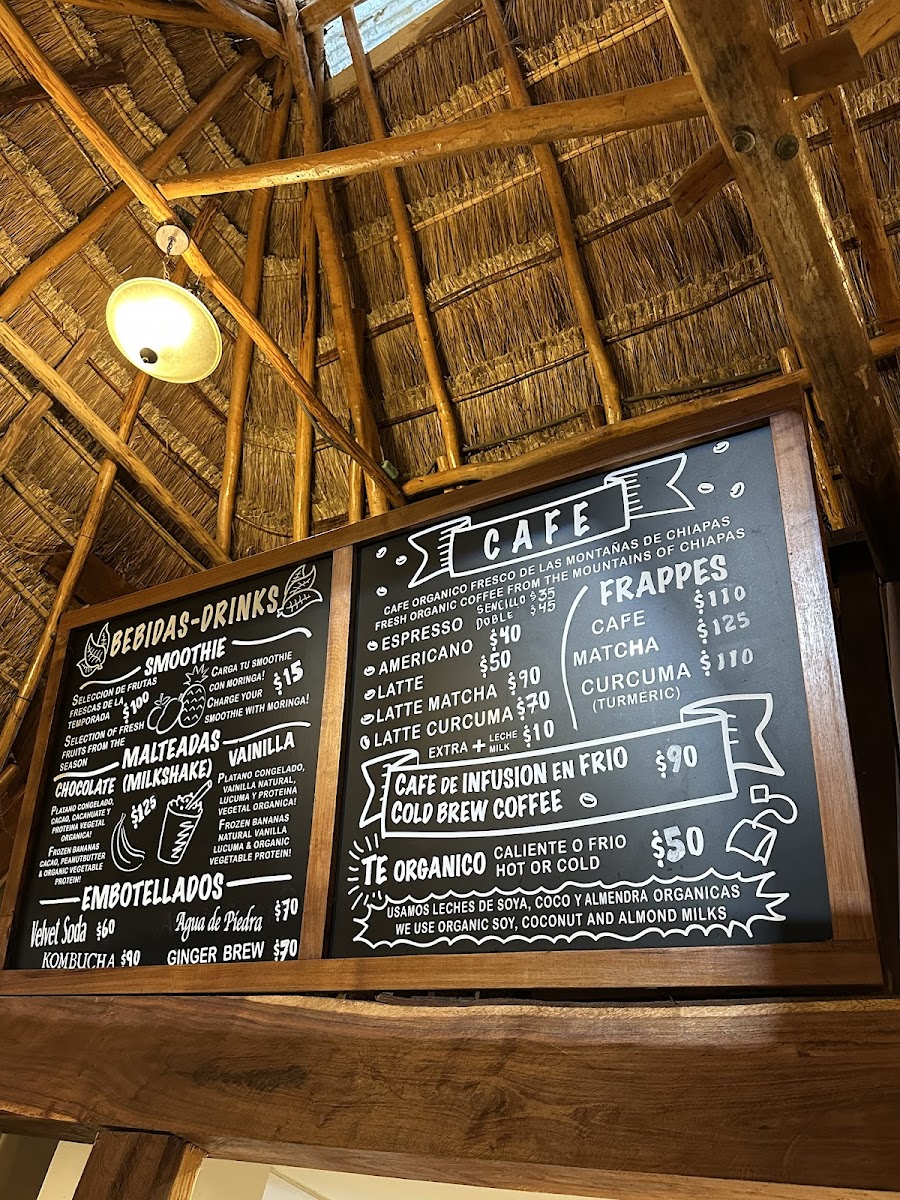 BEBIDAS-DRINKS
SMOOTHIE
SELECCION DE FRUTAS
FRESCAS DE LA
TEMPORADA $100
SELECTION OF FRESH
FRUITS FROM THE
SEASON
CARGA TU SMOOTHIE
CON MORINGA! $15
CHARGE YOUR
SMOOTHIE WITH MORINGA!
MALTEADAS
(MILKSHAKE)
$125
CHOCOLATE
PLATANO CONGELADO,
CACAO, CACAHUATE Y
PROTEINA VEGETAL
ORGANICA!
FROZEN BANANAS
CACAO, PEANUTBUTTER
& ORGANIC VEGETABLE
PROTEIN!
VAINILLA
PLATANO CONGELADO,
VAINILLA NATURAL,
LUCUMA Y PROTEINA
VEGETAL ORGANICA!
FROZEN BANANAS
NATURAL VANILLA
LUCUMA & ORGANIC
VEGETABLE PROTEIN!
EMBOTELLADOS
Velvet Soda $60
Agua de Piedra $70
KOMBUCHA $90
GINGER BREW $70
CAFE
CAFE ORGANICO FRESCO DE LAS MONTAÑAS DE CHIAPAS
FRESH ORGANIC COFFEE FROM THE MOUNTAINS OF CHIAPAS
ESPRESSO SENCILLO $35
DOBLE $45
AMERICANO $40
LATTE $50
LATTE MATCHA $90
LATTE CURCUMA $70
EXTRA + LECHE MILK $10
FRAPPES
CAFE $110
MATCHA $125
CURCUMA $110
(TURMERIC)
CAFE DE INFUSION EN FRIO $90
COLD BREW COFFEE
TE ORGANICO CALIENTE O FRIO $50
HOT OR COLD
USAMOS LECHES DE SOYA, COCO Y ALMENDRA ORGANICAS
WE USE ORGANIC SOY, COCONUT AND ALMOND MILKS